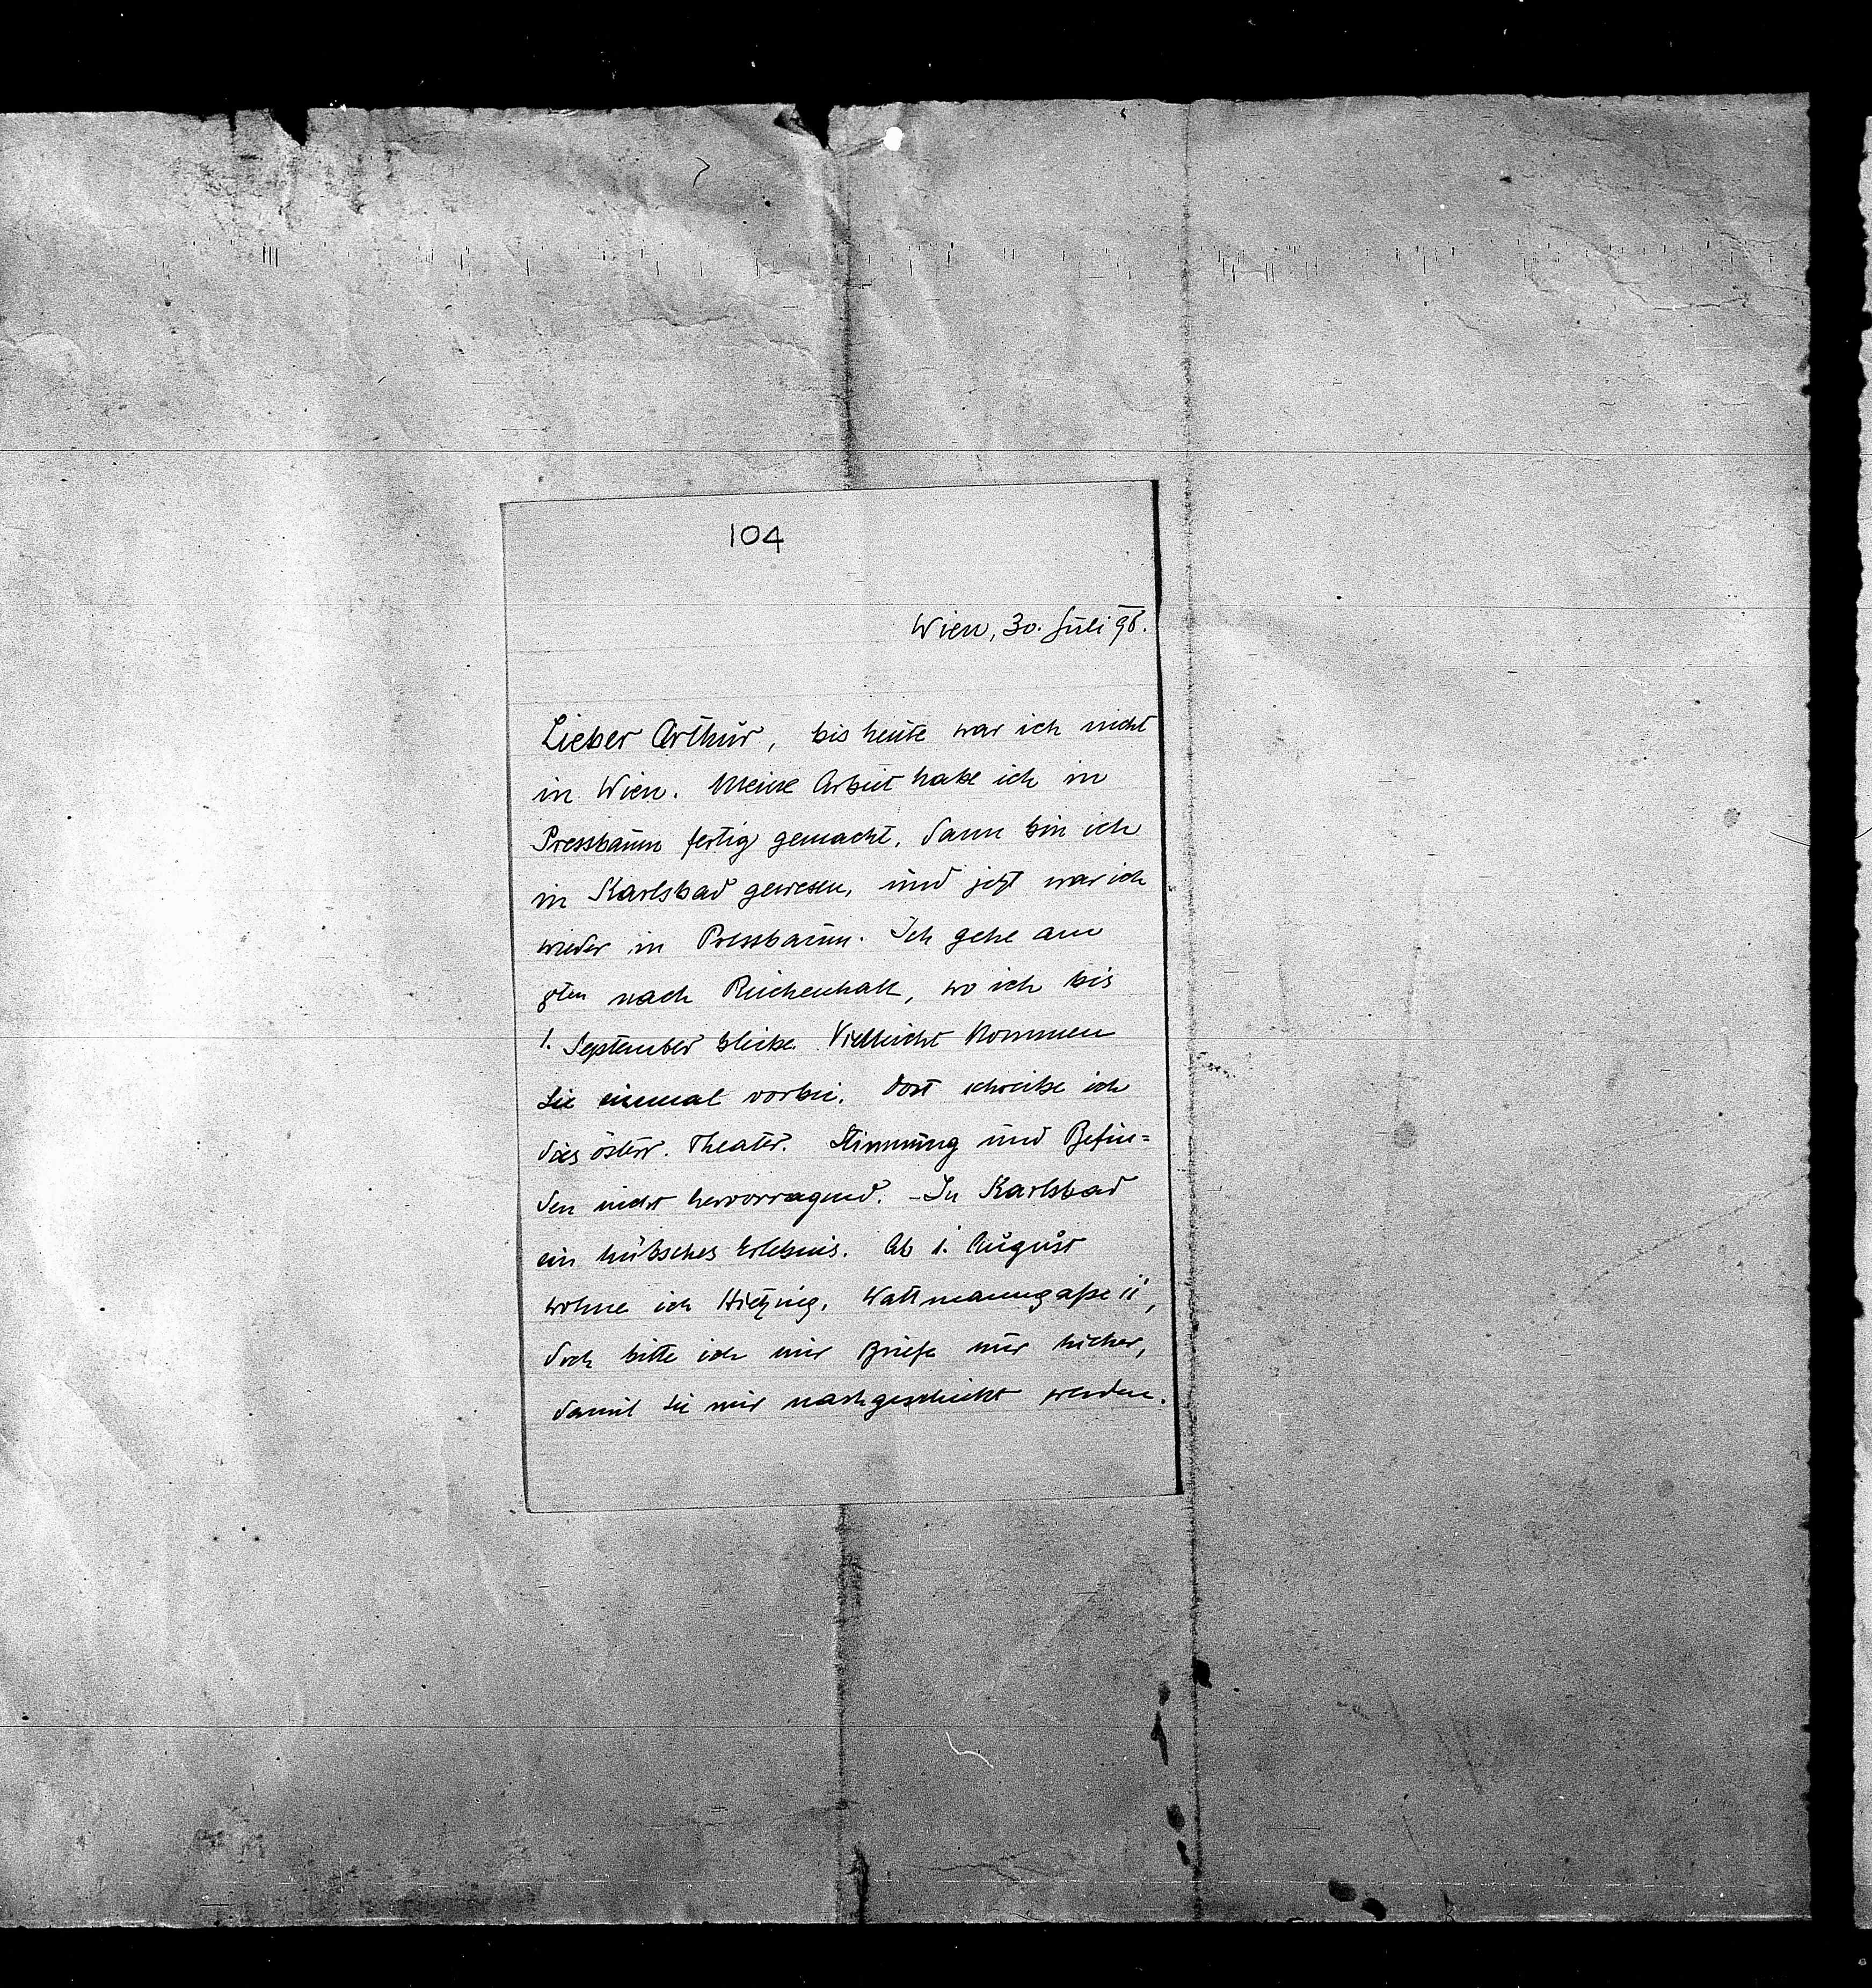 104
Wien, 30. Juli 98.
Lieber Arthur, bis heute war ich nicht
in Wien. Meine Arbeit habe ich in
Pressbaum fertig gemacht, dann bin ich
in Karlsbad gewesen, und jetzt war ich
wieder in Pressbaum. Ich gehe am
8ten nach Reichenhall, wo ich bis
1. September bleibe. Vielleicht kommen
Sie einmal vorbei. Dort schreibe ich
das österr. Theater. Stimmung und Befin=
den nicht hervorragend. – In Karlsbad
ein hübsches Erlebnis. Ab 1. August
wohne ich Hietzing, Wattmanngaße 11,
doch bitte ich mir Briefe nur hieher,
damit sie mir nachgeschickt werden.